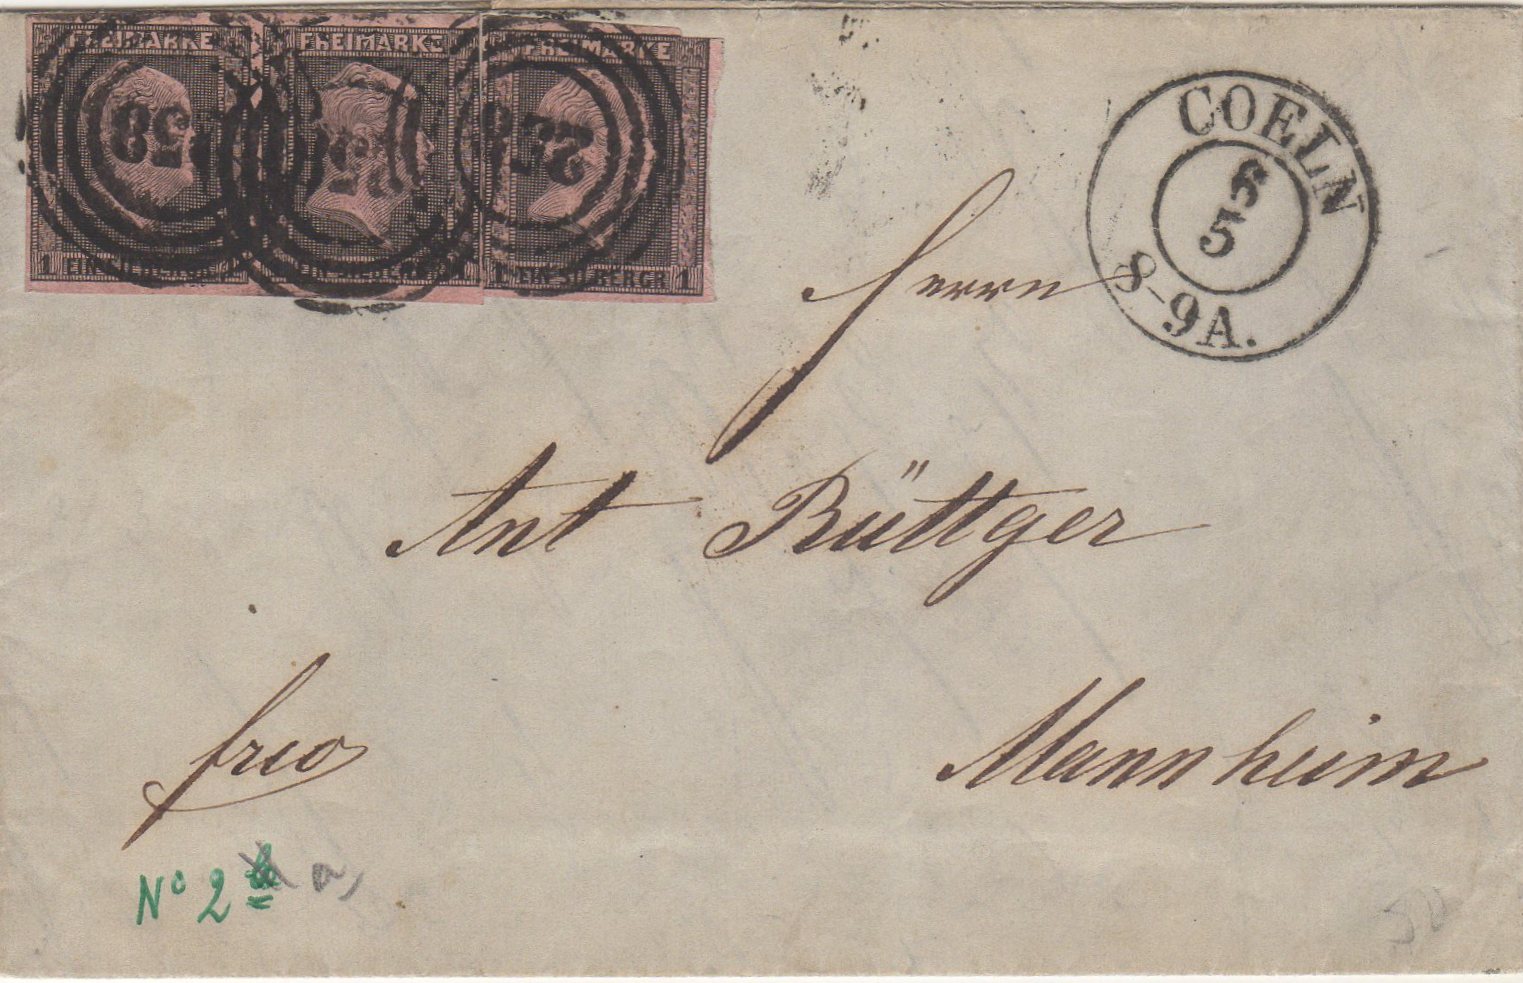 FREIMARKE FREIMARKE FREIMARKE
258
1 EIN SILBERGR. 1 EIN SILBERGR. 1 1 EIN SILBERGR. 1
COELN
6
5
8-9A.
Herrn
Ant Rüttger
frco
Mannheim
No 2 a